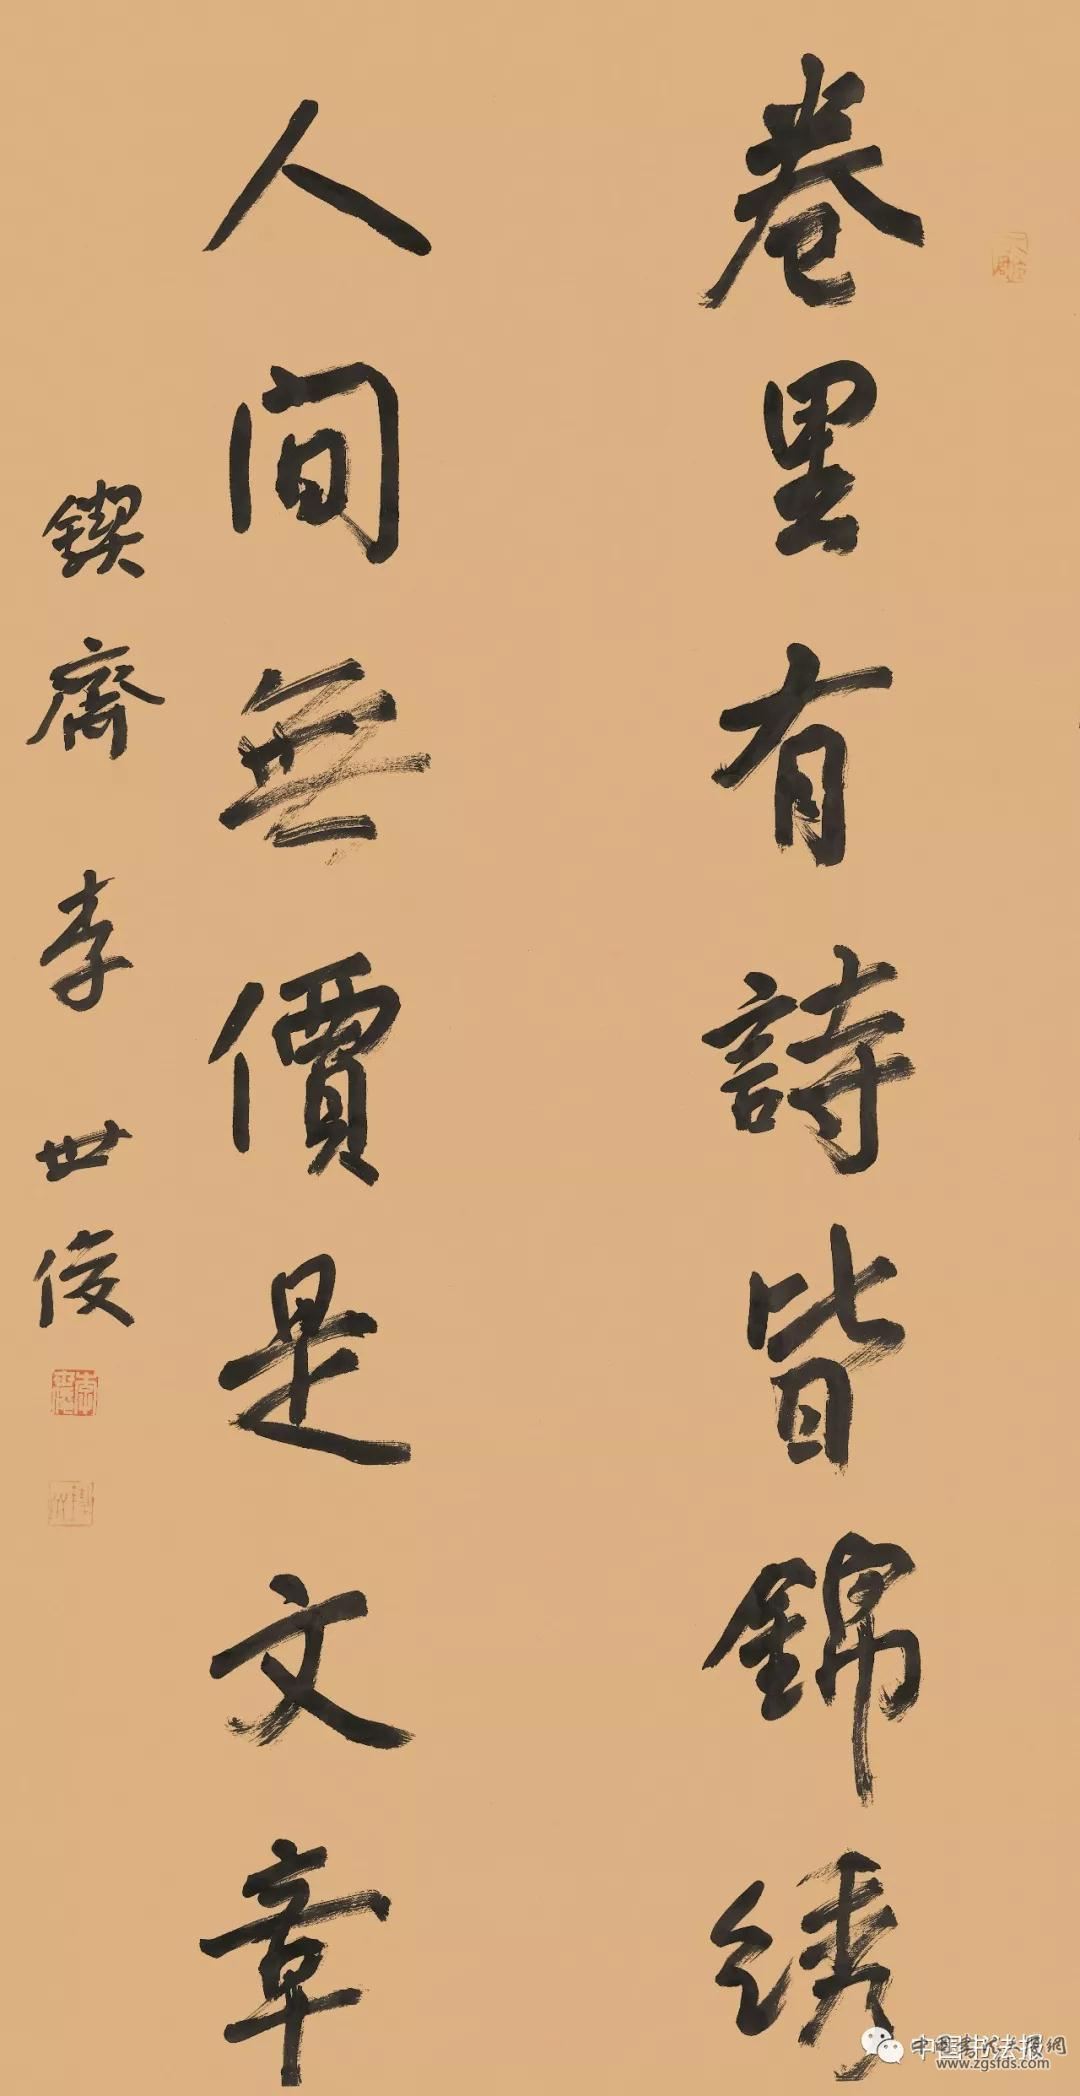 卷里有詩皆錦绣
人间無價是文章
鍥齋李世俊
中国书法报
中国书法大报網
www.zgsfds.com